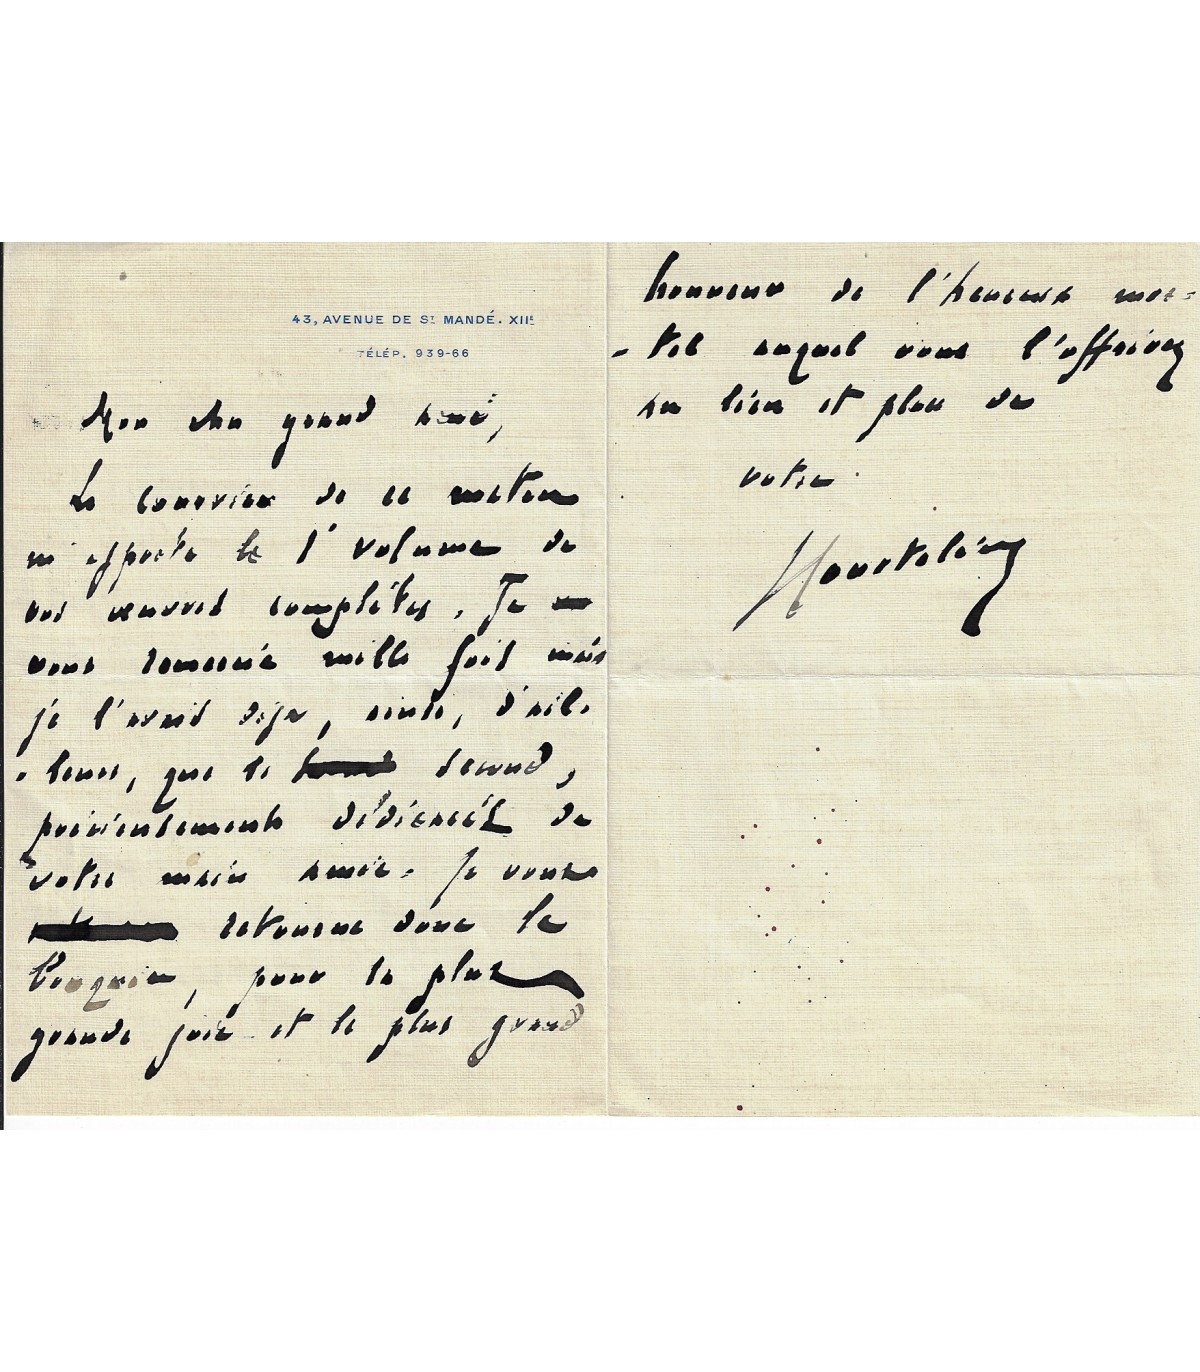 43, AVENUE DE ST MANDÉ. XIIE
TÉLÉP. 939-66
Mon cher grand ami,
Le courrier de ce matin
m'apporte le 1r volume de
vos œuvres complètes. Je
vous remercie mille fois mais
je l'avais déjà, ainsi, d'ail-
-leurs, que le second,
précieusement dédicacés de
votre main amie. Je vous
retourne donc le
bouquin, pour la plus
grande joie et le plus grand
honneur de l'heureux mor-
-tel auquel vous l'offrirez
au lieu et place de
votre
GCourteline